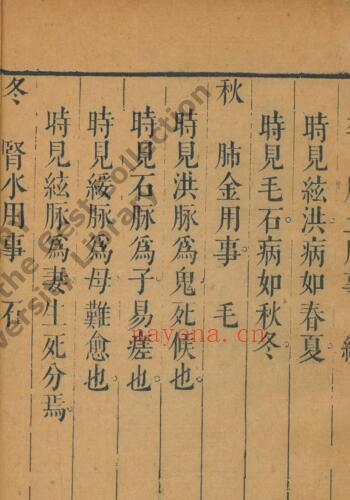 時見絃洪病如春夏
時見毛石病如秋冬。
秋　肺金用事　毛
時見洪脉為鬼死候也
時見石脉為子易瘥也。
時見緩脉為母難愈也。
時見絃脉為妻生死分焉。
冬　腎水用事　石
nayona.cn